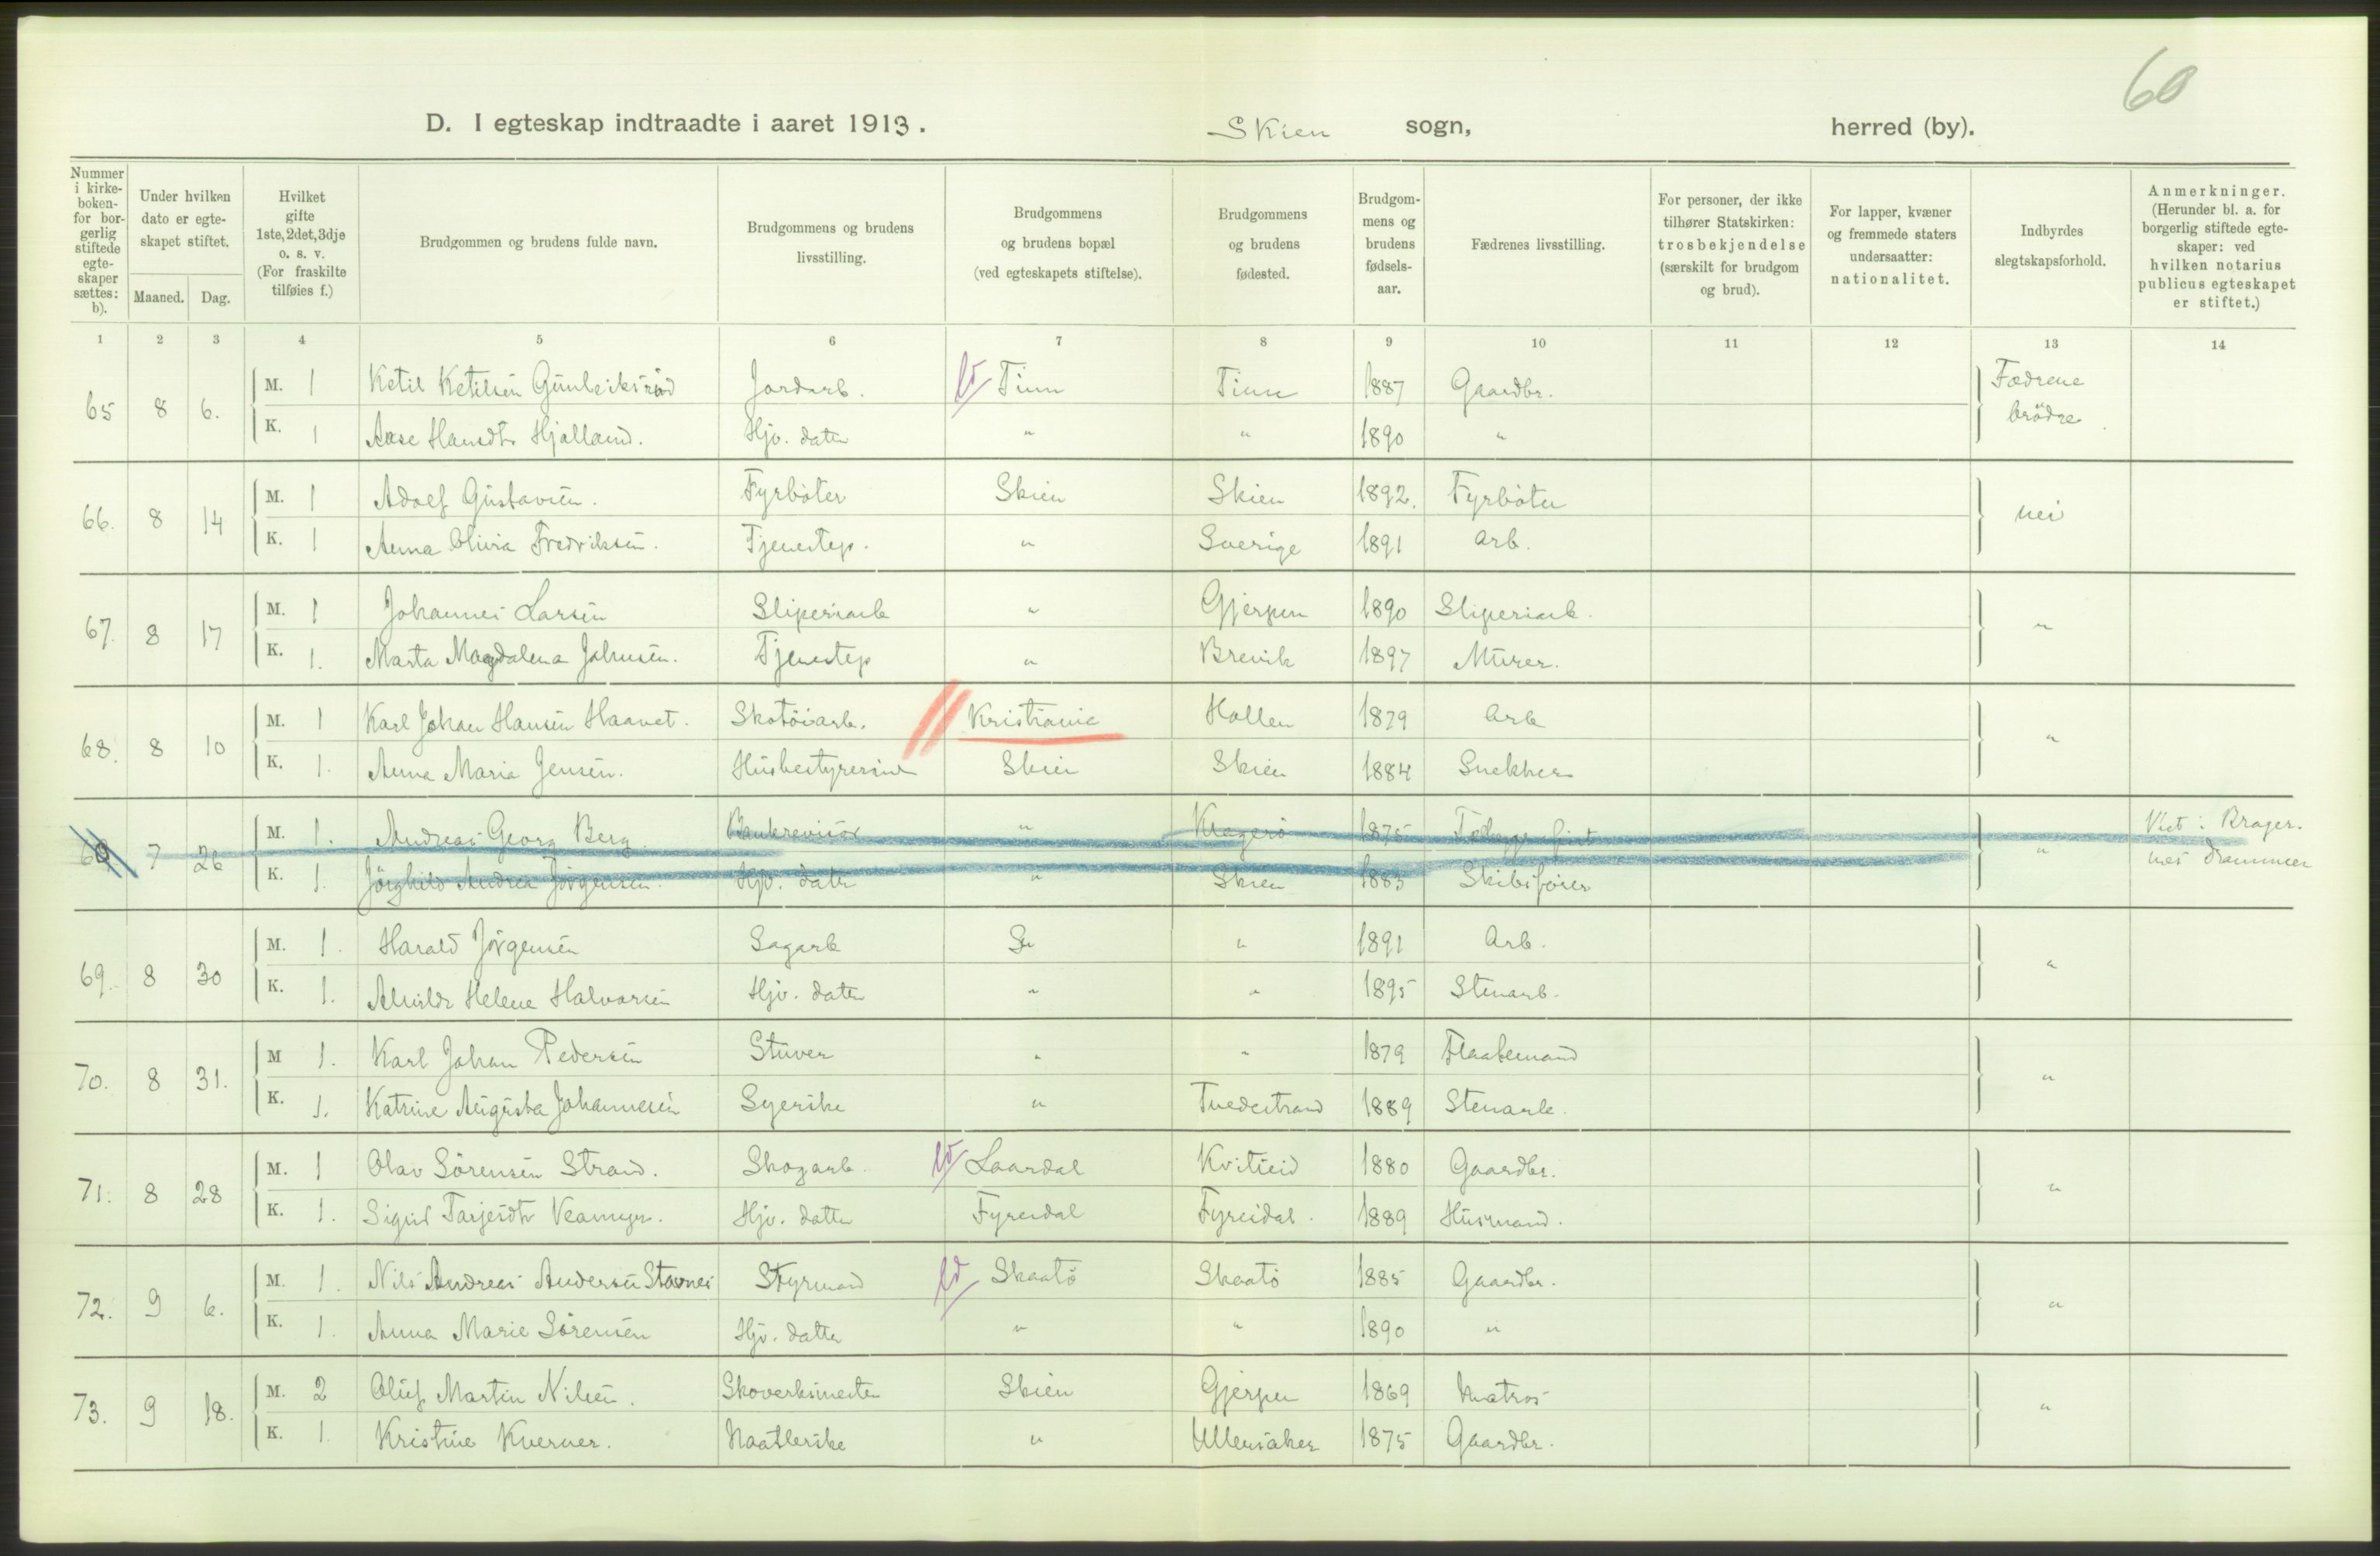 60
D. I egteskap indtraadte i aaret 1913. Skien sogn, herred (by).
Nummer i kirke-boken- for bor-gerlig stiftede egte-skaper sættes: b).
Under hvilken dato er egte-skapet stiftet.
Maaned. Dag.
Hvilket gifte 1ste, 2det, 3dje o. s. v. (For fraskilte tilføies f.)
Brudgommen og brudens fulde navn.
Brudgommens og brudens livsstilling.
Brudgommens og brudens bopæl (ved egteskapets stiftelse).
Brudgommens og brudens fødested.
Brudgom-mens og brudens fødsels-aar.
Fædrenes livsstilling.
For personer, der ikke tilhører Statskirken: trosbekjendelse (særskilt for brudgom og brud).
For lapper, kvæner og fremmede staters undersaatter: nationalitet.
Indbyrdes slegtskapsforhold.
Anmerkninger. (Herunder bl. a. for borgerlig stiftede egte-skaper: ved hvilken notarius publicus egteskapet er stiftet.)
1 2 3 4 5 6 7 8 9 10 11 12 13 14
65 8 6. M. 1 Ketil Ketilsen Gunleiksrud Jordarb. Tinn Tinn 1887 Gaardbr. Fædrene brödre
K. 1 Aase Hansdtr Hjalland. Hjv. datter " " 1890 "
66. 8 14 M. 1 Adolf Gustavsen. Fyrböter Skien Skien 1892. Fyrböter nei
K. 1 Anna Olivia Fredriksen. Tjenestep. " Sverige 1891 Arb.
67. 8 17 M. 1 Johannes Larsen Sliperiarb " Gjerpen 1890 Sliperiarb. "
K. 1. Marta Magdalena Johnsen. Tjenestep " Brevik 1897 Murer.
68. 8 10 M. 1 Karl Johan Hansen Haavet. Skotöiarb. Kristiania Hollen 1879 Arb "
K. 1. Anna Maria Jensen. Husbestyrerinde Skien Skien 1884 Snekker
69 7 26 M. 1. Andreas Georg Berg. Bankrevisor " Kragerö 1875 " Viet i Brager-
K. 1. Jörghild Andrea Jörgensen. Hjv. datter " Skien 1883 Skibsförer nes Drammen
69. 8 30 M. 1. Harald Jörgensen Sagarb Sk " 1891 Arb. "
K. 1. Alvilde Helene Halvorsen Hjv. datter " " 1895 Stenarb.
70. 8 31. M 1. Karl Johan Pedersen Stuver " " 1879 Flaatemand "
K. 1. Katrine Augusta Johannesen Syerske " Tvedestrand 1889 Stenarb.
71. 8 28 M. 1 Olav Sörensen Strand. Skogarb. Laardal Kviteseid 1880 Gaardbr. "
K. 1. Sigrid Tarjeidtr Veamyr. Hjv. datter Fyresdal Fyresdal. 1889 Husmand.
72. 9 6. M. 1. Nils Andreas Andersen Stavnes Styrmand Skaatö Skaatö 1885 Gaardbr. "
K. 1. Anna Marie Sörensen Hjv. datter " " 1890 "
73. 9 18. M. 2 Oluf Martin Nilsen. Skoverksmester Skien Gjerpen 1869 Matros "
K. 1. Kristine Kverner. Naatlerske " Ullensaker 1875 Gaardbr.